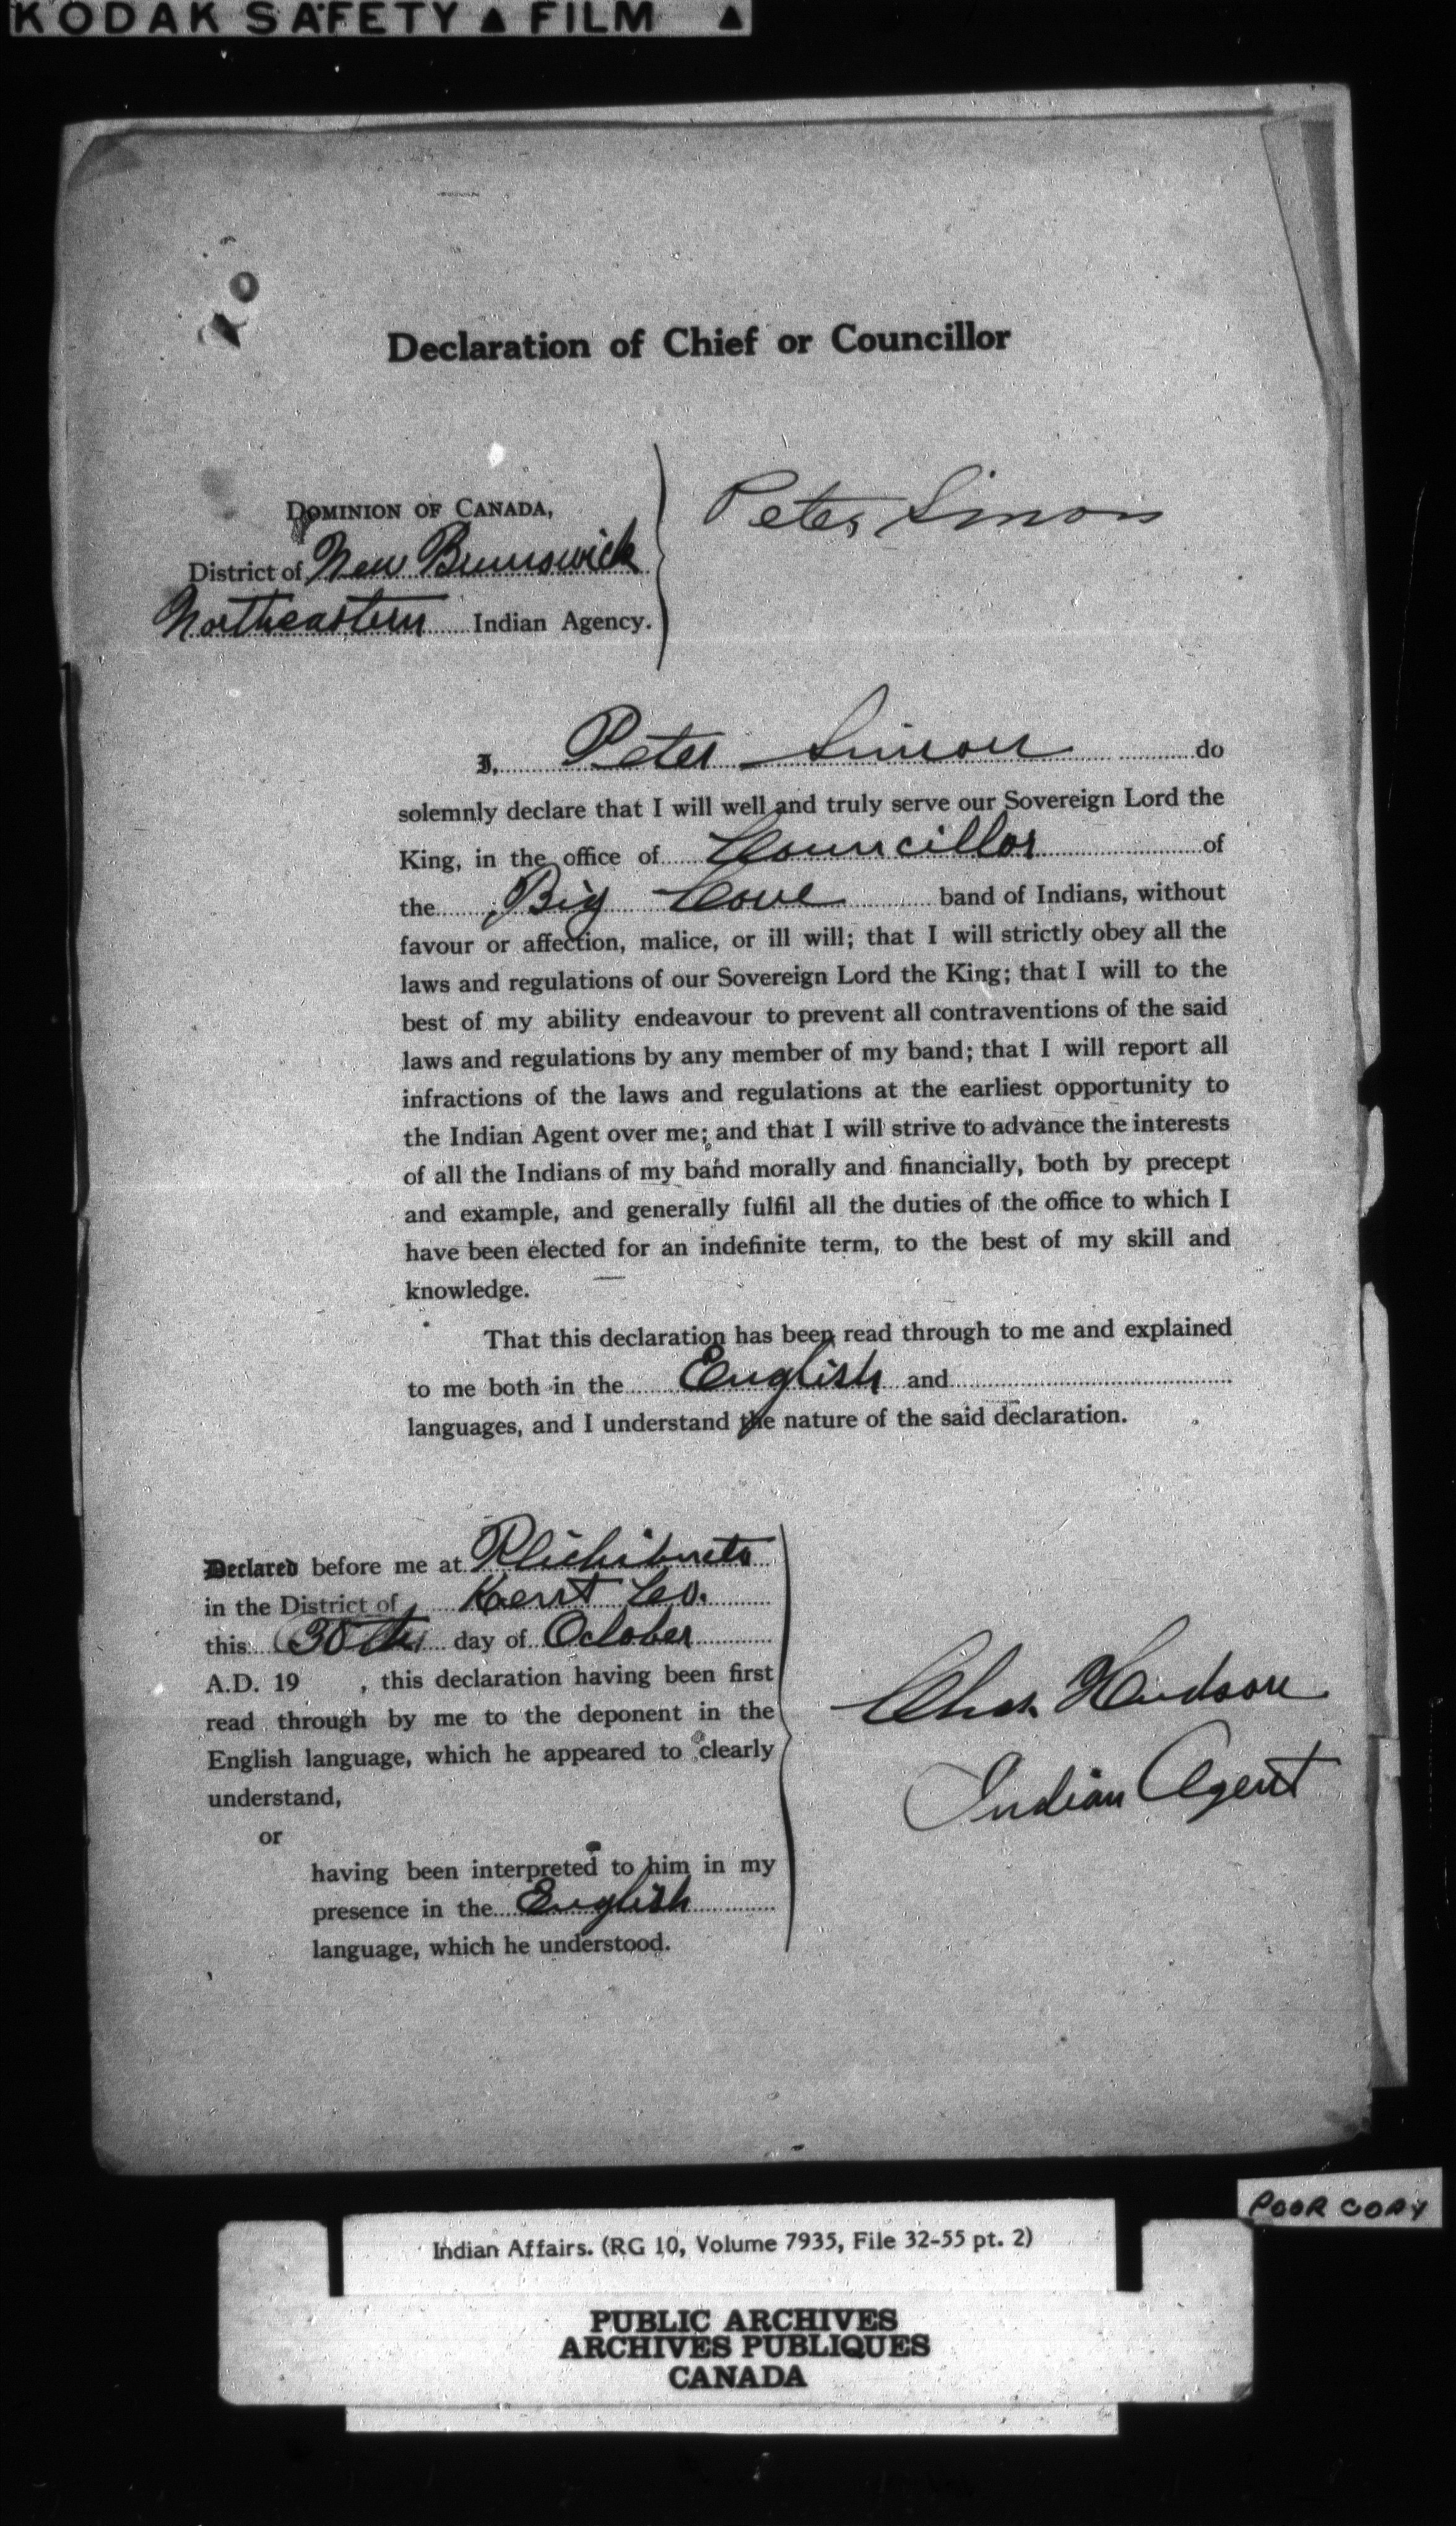 KODAK SAFETY ▲ FILM ▲
Declaration of Chief or Councillor
DOMINION OF CANADA,
District of New Brunswick
Northeastern Indian Agency.
Peter Simon
I, Peter Simon do
solemnly declare that I will well and truly serve our Sovereign Lord the
King, in the office of Councillor of
the Big Cove band of Indians, without
favour or affection, malice, or ill will; that I will strictly obey all the
laws and regulations of our Sovereign Lord the King; that I will to the
best of my ability endeavour to prevent all contraventions of the said
laws and regulations by any member of my band; that I will report all
infractions of the laws and regulations at the earliest opportunity to
the Indian Agent over me; and that I will strive to advance the interests
of all the Indians of my band morally and financially, both by precept
and example, and generally fulfil all the duties of the office to which I
have been elected for an indefinite term, to the best of my skill and
knowledge.
That this declaration has been read through to me and explained
to me both in the English and
languages, and I understand the nature of the said declaration.
Declared before me at Richibucto
in the District of Kent Co.
this 30th day of October
A.D. 19 , this declaration having been first
read through by me to the deponent in the
English language, which he appeared to clearly
understand,
or
having been interpreted to him in my
presence in the English
language, which he understood.
Chas. Hudson
Indian Agent
POOR COPY
Indian Affairs. (RG 10, Volume 7935, File 32-55 pt. 2)
PUBLIC ARCHIVES
ARCHIVES PUBLIQUES
CANADA